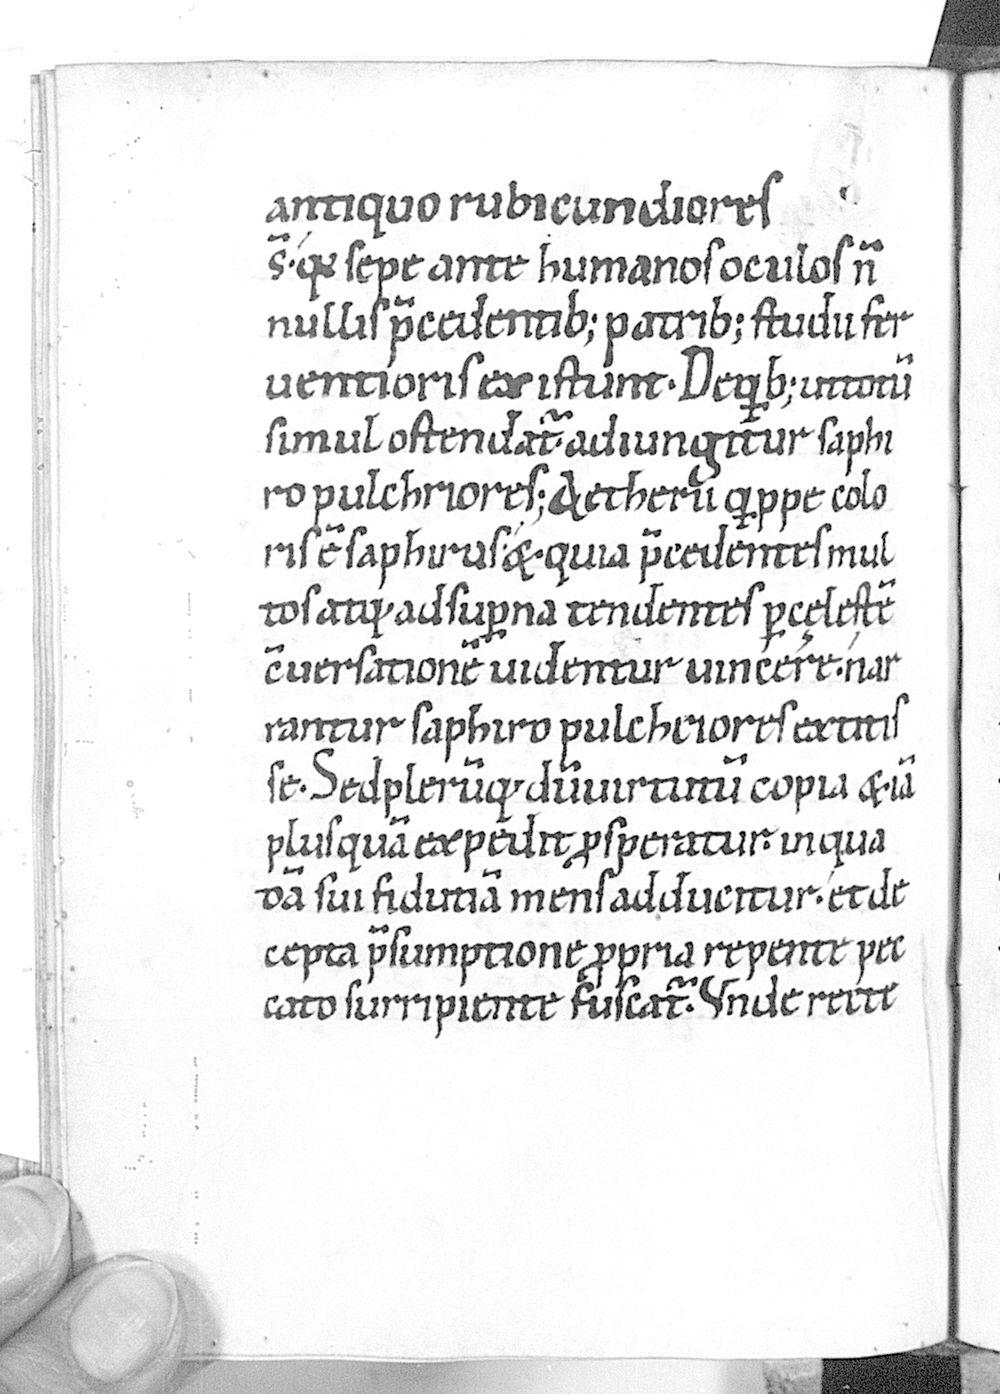 antiquo rubicundiores
s̄· qꝫ sepe ante humanos oculos ñ
nullis p̄cedentib; patrib; studii fer
uentioris existunt. De qͥb; ut totū
simul ostendat᷑ adiungitur saphi
ro pulchriores; Aetherii qͥppe colo
ris ē saphirus· & quia p̄cedentes mul
tos atq· ad suꝑna tendentes ꝑ cęlestē
c̄uersationē uidentur uincere· nar
rantur saphiro pulchriores extitis
se. Sed plerūq· dū uirtutū copia & iā
plus quā expedit ꝓsperatur· in qua
dā sui fidutiā mens adducitur· et de
cepta p̄sumptione ꝓpria repente pec
cato surripiente fuscat᷑. Vnde recte